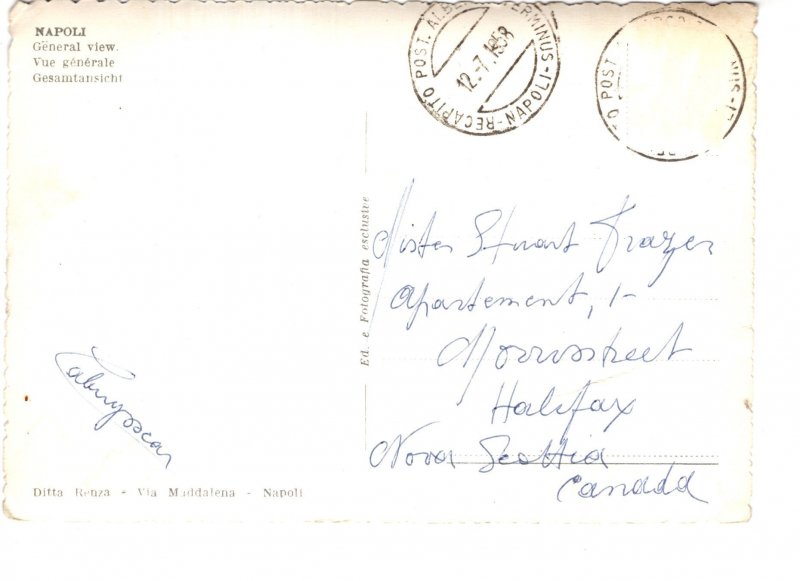 NAPOLI
General view.
Vue générale
Gesamtansicht
RECAPITO POST. TERMINUS - NAPOLI -
12.-7.1958
O POST.
Ed. e Fotografia esclusive
Mister Stuart Frazer
Apartement, 1-
Morrisstreet
Halifax
Nova Scottia
Canada
Ditta Renza - Via Maddalena - Napoli